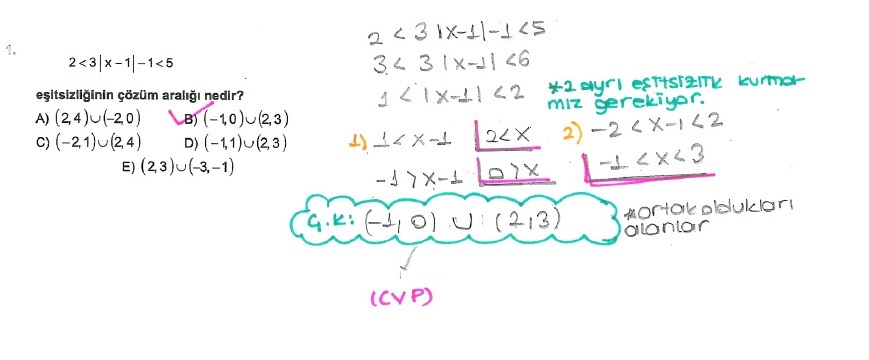 1.
2<3|x-1|-1<5
eşitsizliğinin çözüm aralığı nedir?
A) (2,4)∪(-2,0) B) (-1,0)∪(2,3)
C) (-2,1)∪(2,4) D) (-1,1)∪(2,3)
E) (2,3)∪(-3,-1)
2 < 3 |x-1|-1 <5
3 < 3 |x-1| <6
1 < |x-1| < 2
*2 ayrı eşitsizlik kurma-
mız gerekiyor.
1) 1 < x-1 2<x
-1 > x-1 0>x
2) -2 < x-1 < 2
-1 < x < 3
Ç.K: (-1, 0) ∪ (2,3)
*ortak oldukları
alanlar
(CVP)